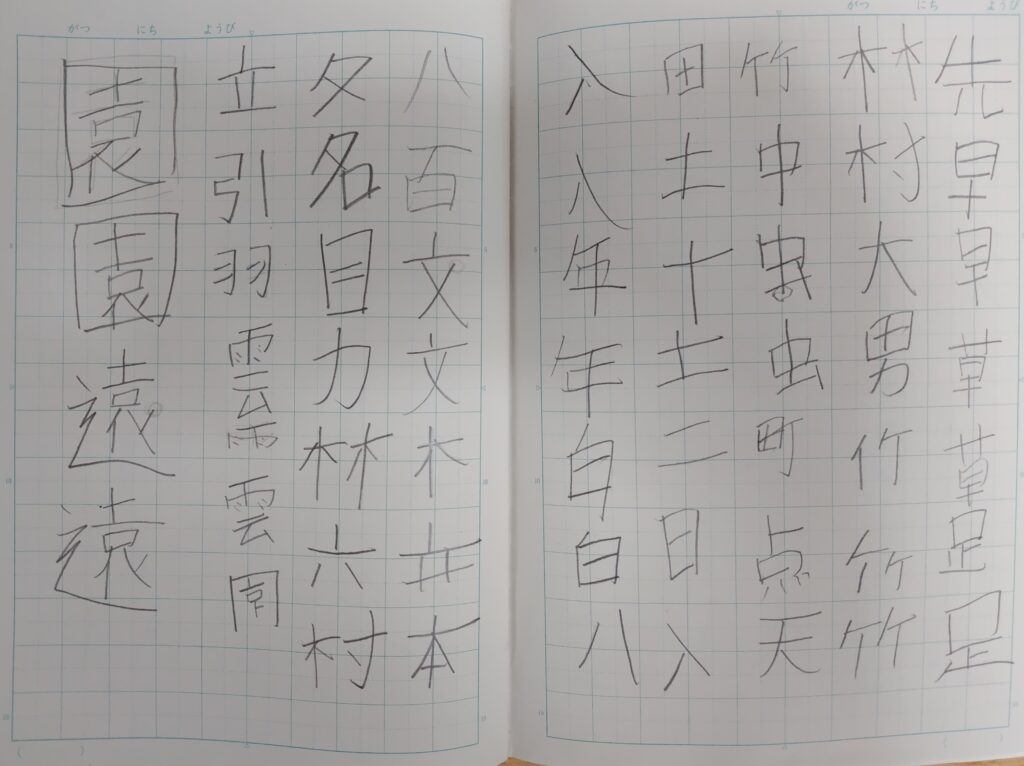 がつ にち ようび
先早早草草足足
林村大男竹竹竹
竹中虫虫町点天
田土十土二日入
入入年年白白八
がつ にち ようび
八百文文木本
夕名目力林六村
立引羽雲雨雲
園園遠遠